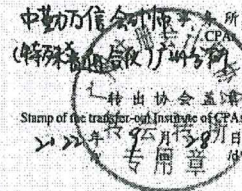 中勤万信会计师事务所
CPAs
(特殊普通合伙)广州分所
转出协会盖章
Stamp of the transfer-out Institute of CPAs
2022年9月28日
/y /m /d
转所专用章